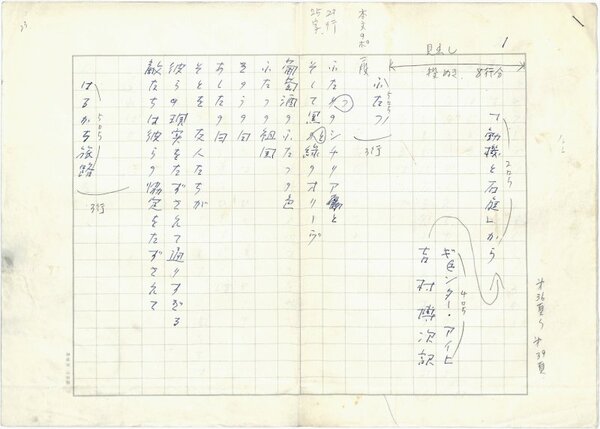 1
見出し
8行分
「動機と石庭」から
ギュンター・アイヒ
吉村博次訳
本文9ポ 一段
29行
25字
ふたつ
3行
ふたつのシチリア島と
そして黒と緑のオリーヴ
葡萄酒のふたつの色
ふたつの祖国
きのうの向
あしたの向
そとを友人たちが
彼らの現実をたずさえて通りすぎる
敵たちは彼らの協定をたずさえて
はるかな旅路
3行